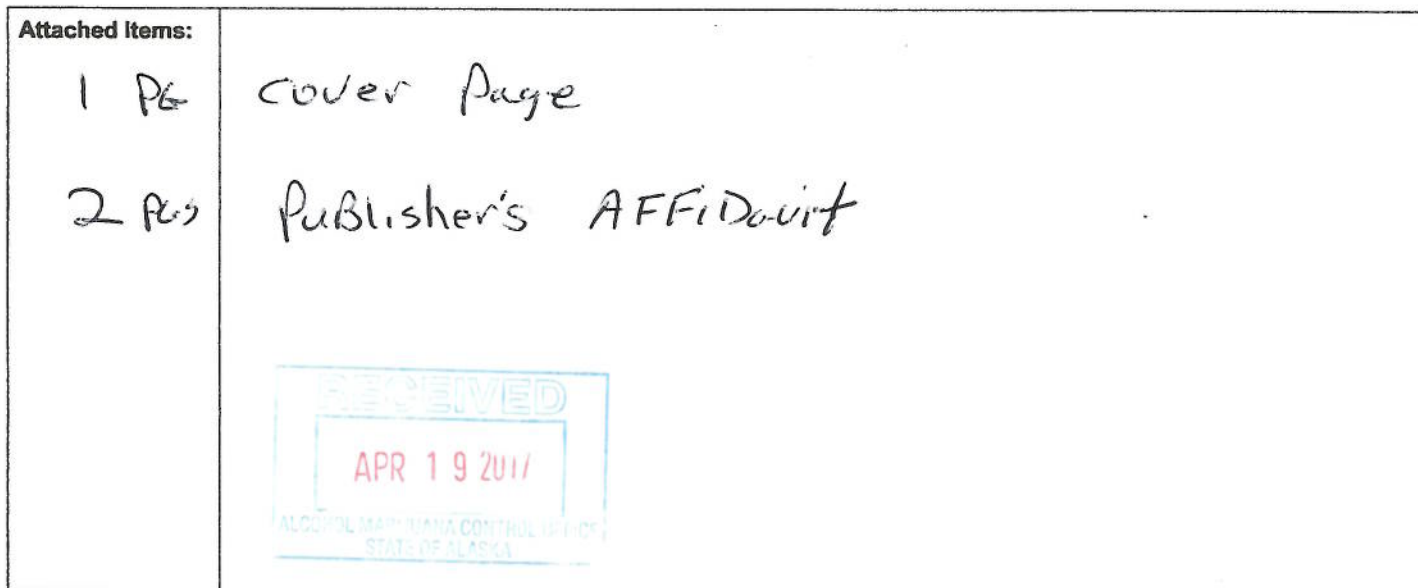 Attached Items:
1 PG cover Page
2 PGS PuBlisher's AFFiDavit
RECEIVED
APR 19 2017
ALCOHOL MARIJUANA CONTROL OFFICE
STATE OF ALASKA